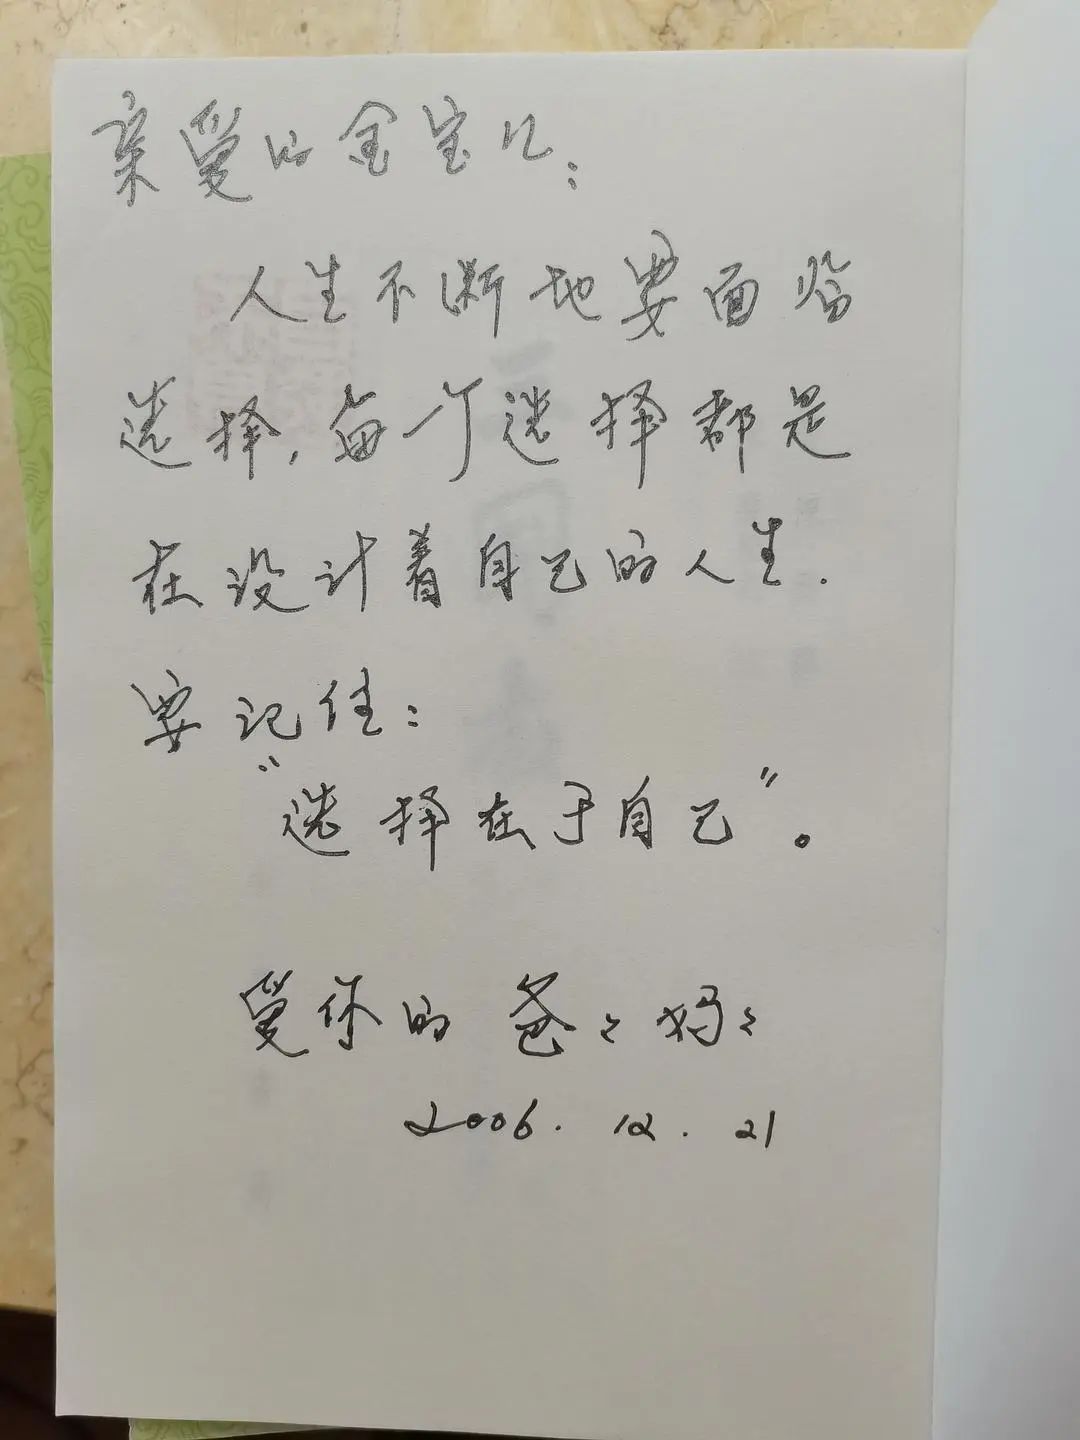 亲爱的金宝儿:
人生不断地要面临
选择,每个选择都是
在设计着自己的人生.
要记住:
“选择在于自己”。
爱你的爸々妈々
2006.12.21